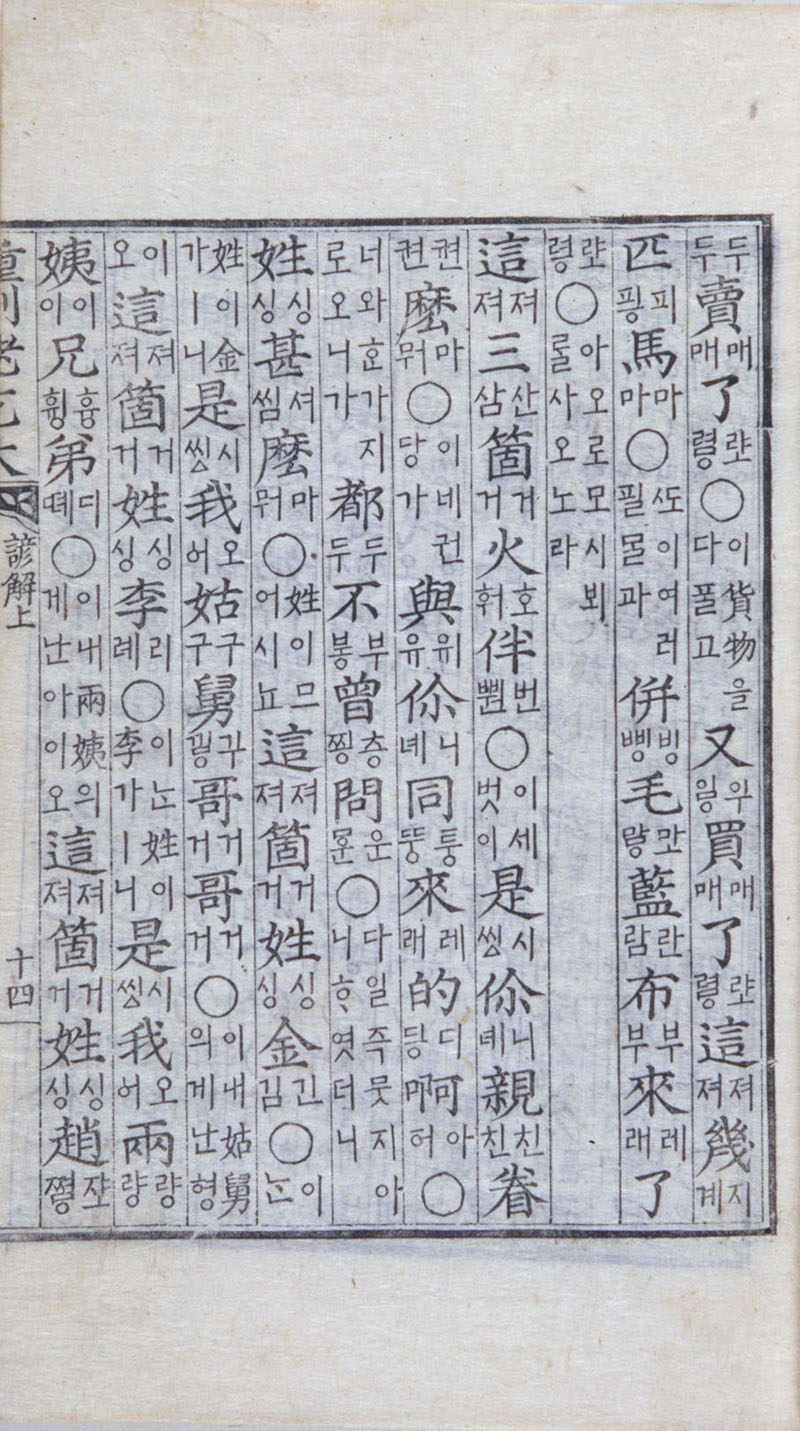 두두賣매매了랴ᅩ려ᇢ○이貨物을다ᄑᆞᆯ고又우이ᇢ買매매了랴ᅩ려ᇢ這져져幾지계
匹피핑馬마마○ᄯᅩ이여러필ᄆᆞᆯ과併빙삥毛마ᅩ마ᇢ藍란람布부부來레래了
랴ᅩ려ᇢ○아오로모시뵈ᄅᆞᆯ사오노라
這져져三산삼箇거거火호훠伴번뿬○이세벗이是시씽伱니녜親친친眷
권권麽마뭐○이네권당가與위유伱니녜同퉁뚱來레래的디딩啊아허○
너와ᄒᆞᆫ가지로오니가都두두不부붕曾층쯩問운문○다일즉뭇지아니ᄒᆞ엿더니
姓싱싱甚셔씸麽마뭐○姓이므어시뇨這져져箇거거姓싱싱金긴김○이ᄂᆞᆫ
姓이金가ㅣ니是시씽我오어姑구구舅구끼ᇢ哥거거哥거거○이내姑舅의게난형
이오這져져箇거거姓싱싱李리례○이ᄂᆞᆫ姓이李가ㅣ니是시씽我오어兩량량
姨이이兄흥휭弟디뗴○이내兩姨의게난아이오這져져箇거거姓싱싱趙쟈ᅩ쪄ᇢ
重刊老乞大諺解上 十四